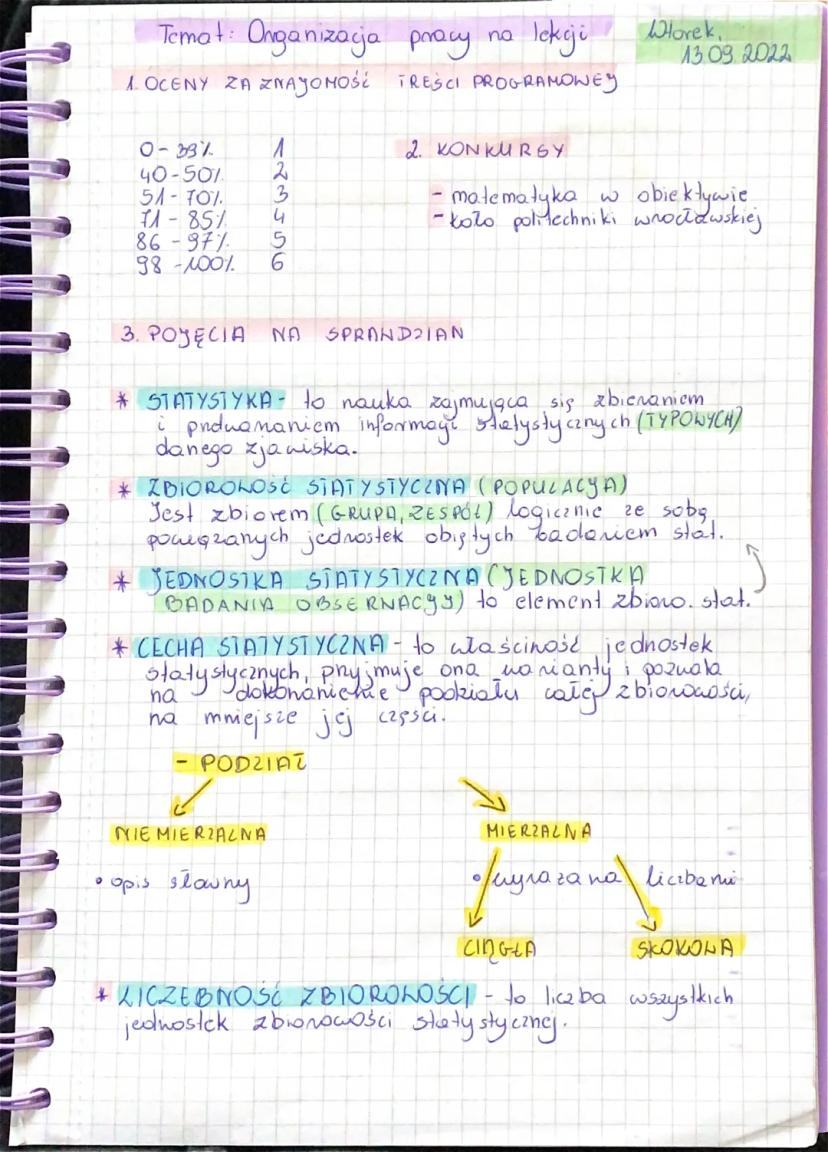 Temat: Organizacja pracy na lekcji
Wtorek,
13.09.2022
1. OCENY ZA ZNAJOMOŚĆ TREŚCI PROGRAMOWEJ
0-39% 1
40-50% 2
51-70% 3
71-85% 4
86-97% 5
98-100% 6
2. KONKURSY
- matematyka w obiektywie
- koło politechniki wrocławskiej
3. POJĘCIA NA SPRAWDZIAN
* STATYSTYKA - to nauka zajmująca się zbieraniem
i informacji statystycznych (TYPOWYCH)
danego zjawiska.
* ZBIOROWOŚĆ STATYSTYCZNA (POPULACJA)
Jest zbiorem (GRUPA, ZESPÓŁ) logicznie ze sobą
powiązanych jednostek objętych badaniem stat.
* JEDNOSTKA STATYSTYCZNA (JEDNOSTKA
BADANIA OBSERWACJI) to element zbioro. stat.
* CECHA STATYSTYCZNA - to właściwość jednostek
statystycznych, przyjmuje ona warianty i pozwala
na dokonanie podziału całej zbiorowości,
na mniejsze jej części.
- PODZIAŁ
NIEMIERZALNA
MIERZALNA
• opis słowny
• wyrażana liczbami
CIĄGŁA
SKOKOWA
* LICZEBNOŚĆ ZBIOROWOŚCI - to liczba wszystkich
jednostek zbiorowości statystycznej.